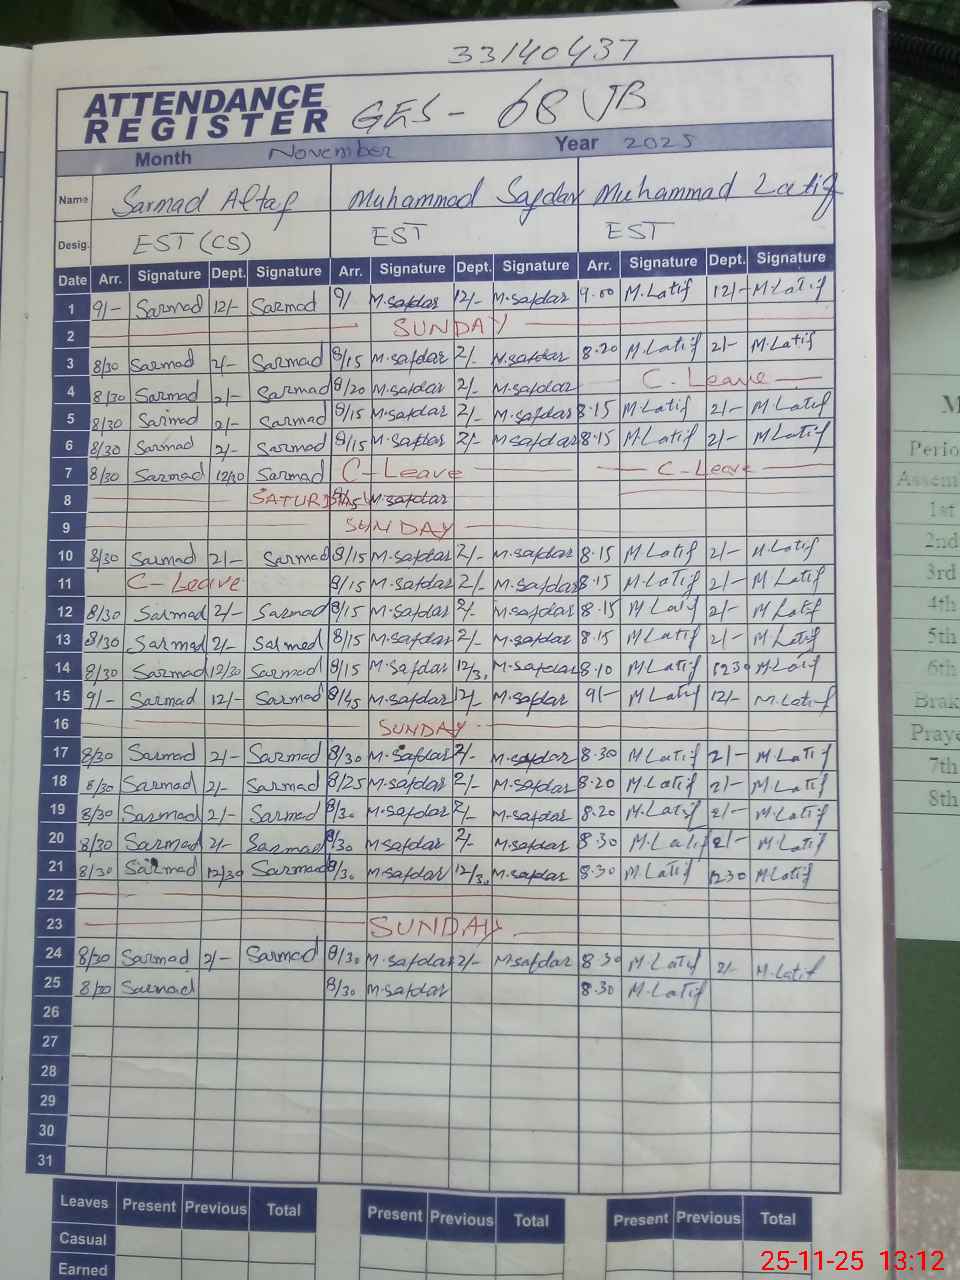 33140437
ATTENDANCE
REGISTER GES - 68 JB
Month November Year 2025
Name Sarmad Altaf Muhammad Safdar Muhammad Latif
Desig. EST (CS) EST EST
Date Arr. Signature Dept. Signature Arr. Signature Dept. Signature Arr. Signature Dept. Signature
1 9/- Sarmad 12/- Sarmad 9/ M.safdar 12/- M.safdar 9.00 M.Latif 12/- M.Latif
2 SUNDAY
3 8/30 Sarmad 2/- Sarmad 8/15 M.safdar 2/- M.safdar 8.20 M.Latif 2/- M.Latif
4 8/30 Sarmad 2/- Sarmad 8/20 M.safdar 2/- M.safdar C.Leave
5 8/30 Sarmad 2/- Sarmad 8/15 M.safdar 2/- M.safdar 8.15 M.Latif 2/- M.Latif
6 8/30 Sarmad 2/- Sarmad 8/15 M.safdar 2/- M.safdar 8.15 M.Latif 2/- M.Latif
7 8/30 Sarmad 12/30 Sarmad C-Leave C-Leave
8 M.safdar
9 SUNDAY
10 8/30 Sarmad 2/- Sarmad 8/15 M.safdar 2/- M.safdar 8.15 M.Latif 2/- M.Latif
11 C-Leave 8/15 M.safdar 2/- M.safdar 8.15 M.Latif 2/- M Latif
12 8/30 Sarmad 2/- Sarmad 8/15 M.safdar 2/- M.safdar 8.15 M Latif 2/- M Latif
13 8/30 Sarmad 2/- Sarmed 8/15 M.safdar 2/- M.safdar 8.15 M Latif 2/- M.Latif
14 8/30 Sarmad 12/30 Sarmad 8/15 M.safdar 12/3. M.safdar 8.10 M Latif 1230 M Latif
15 9/- Sarmad 12/- Sarmad 8/45 M.safdar 12/- M.safdar 9/- M Latif 12/- M.Latif
16 SUNDAY
17 8/30 Sarmad 2/- Sarmad 8/30 M.safdar 2/- M.safdar 8.30 M Latif 2/- M.Latif
18 8/30 Sarmad 2/- Sarmad 8/25 M.safdar 2/- M.safdar 8.20 M Latif 2/- M.Latif
19 8/30 Sarmad 2/- Sarmad 8/3. M.safdar 2/- M.safdar 8.20 M.Latif 2/- M.Latif
20 8/30 Sarmad 2/- Sarmad 8/30 M safdar 2/- M.safdar 8.30 M.Latif 2/- M.Latif
21 8/30 Sarmad 12/30 Sarmad 8/3. M safdar 12/3. M.safdar 8.30 M Latif 1230 M.Latif
22
23 SUNDAY
24 8/30 Sarmad 2/- Sarmad 8/3. M.safdar 2/- M safdar 8.30 M.Latif 2/- M.Latif
25 8/30 Sarmad 8/30 M.safdar 8.30 M.Latif
26
27
28
29
30
31
Leaves Present Previous Total Present Previous Total Present Previous Total
Casual
Earned
1st
2nd
3rd
4th
5th
6th
Brak
Praye
7th
8th
25-11-25 13:12